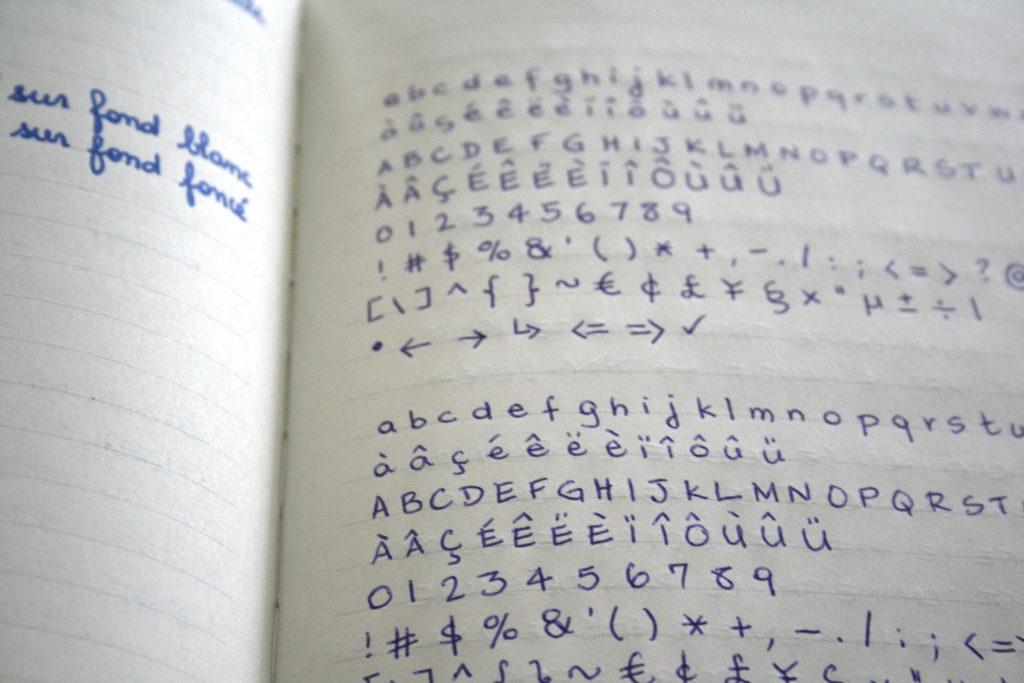 sur fond blanc
sur fond foncé
a b c d e f g h i j k l m n o p q r s t u v w
à â ç é ê ë è ï î ô ù û ü
A B C D E F G H I J K L M N O P Q R S T U
À Â Ç É Ê Ë È Ï Î Ô Ù Û Ü
0 1 2 3 4 5 6 7 8 9
! # $ % & ' ( ) * + , - . / : ; < = > ? @
[ \ ] ^ { } ~ € ¢ £ ¥ § × ° µ ± ÷ |
• ← → ↳ <= => ✓
a b c d e f g h i j k l m n o p q r s t u
à â ç é ê ë è ï î ô û ü
A B C D E F G H I J K L M N O P Q R S T
À Â Ç É Ê Ë È Ï Î Ô Ù Û Ü
0 1 2 3 4 5 6 7 8 9
! # $ % & ' ( ) * + , - . / : ; < =
[ \ ] ^ { } ~ € ¢ £ ¥ §